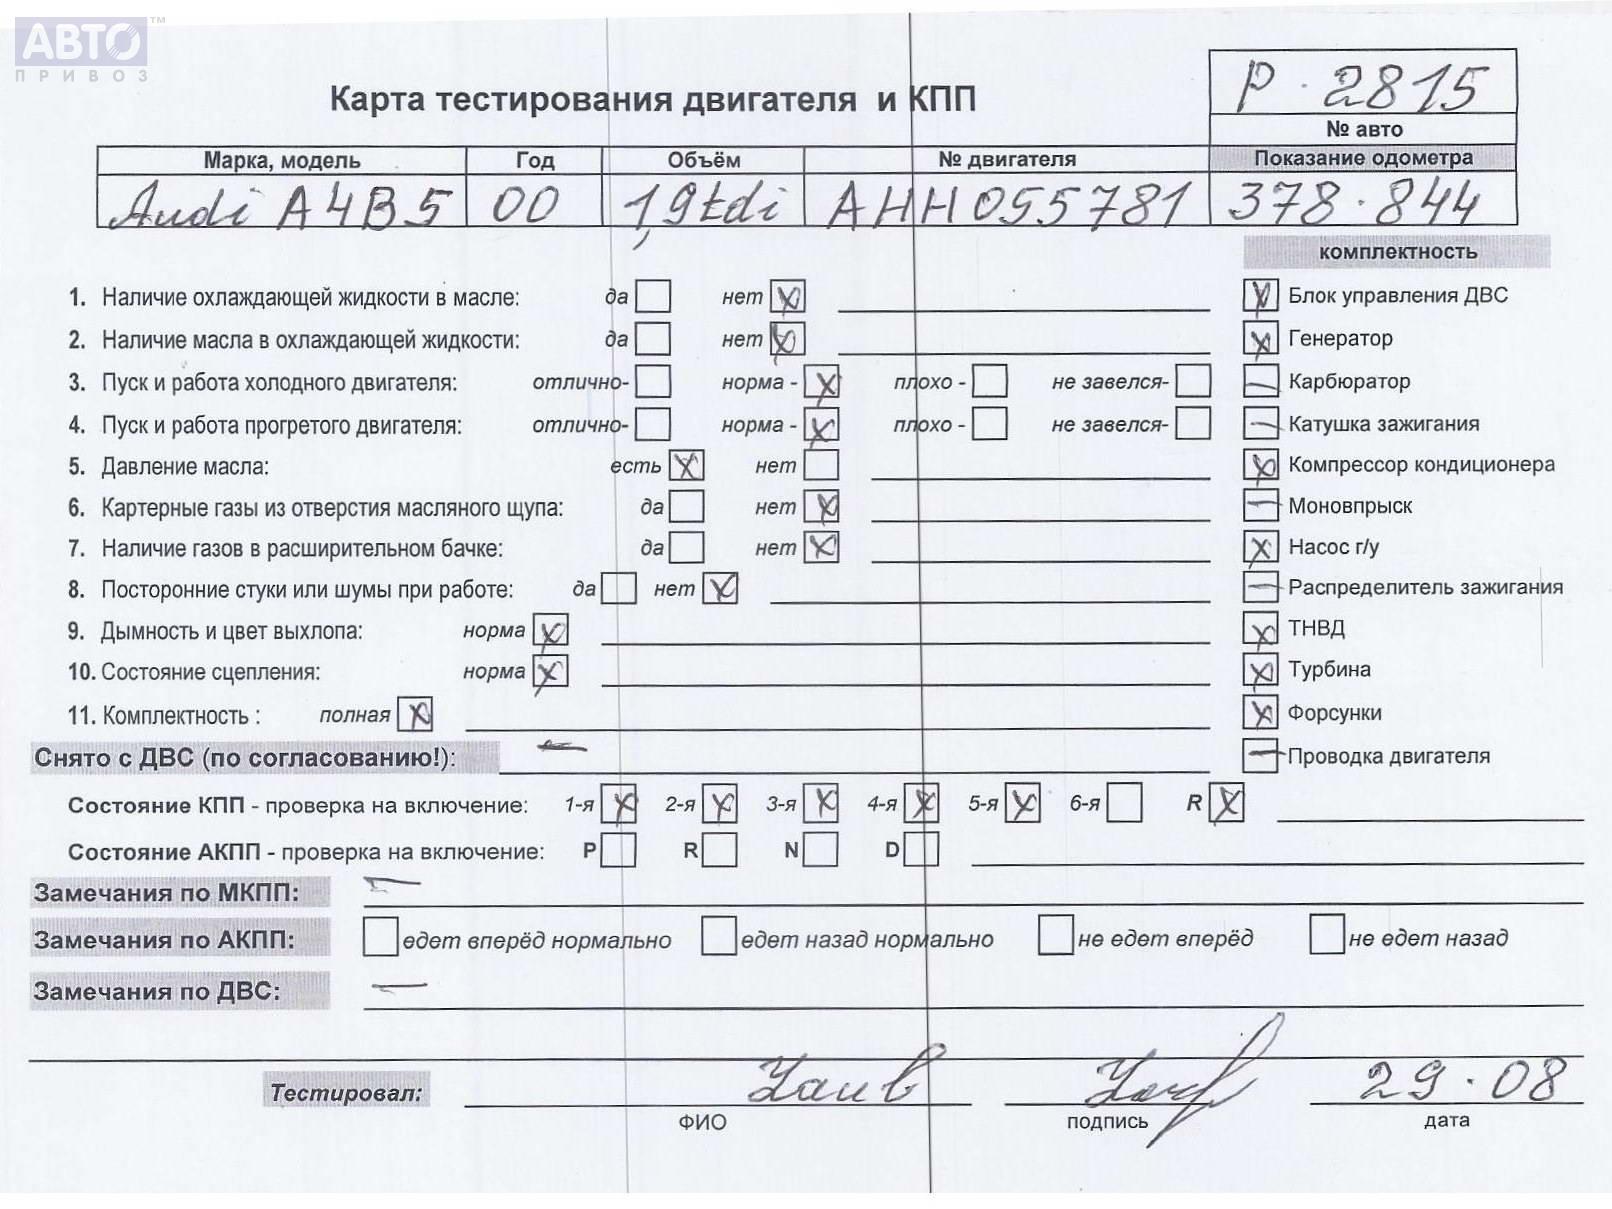 АВТО ™
ПРИВОЗ
Карта тестирования двигателя и КПП
Р · 2815
№ авто
Марка, модель Год Объём № двигателя Показание одометра
Audi A4B5 00 1,9tdi AHH055781 378·844
комплектность
1. Наличие охлаждающей жидкости в масле: да нет X
Блок управления ДВС
2. Наличие масла в охлаждающей жидкости: да нет X
Генератор
3. Пуск и работа холодного двигателя: отлично- норма - X плохо - не завелся-
Карбюратор
4. Пуск и работа прогретого двигателя: отлично- норма - X плохо - не завелся-
Катушка зажигания
5. Давление масла: есть X нет
Компрессор кондиционера
6. Картерные газы из отверстия масляного щупа: да нет X
Моновпрыск
7. Наличие газов в расширительном бачке: да нет X
Насос г/у
8. Посторонние стуки или шумы при работе: да нет X
Распределитель зажигания
9. Дымность и цвет выхлопа: норма X
ТНВД
10. Состояние сцепления: норма X
Турбина
11. Комплектность : полная X
Форсунки
Снято с ДВС (по согласованию!): —
Проводка двигателя
Состояние КПП - проверка на включение: 1-я X 2-я X 3-я X 4-я X 5-я X 6-я R X
Состояние АКПП - проверка на включение: P R N D
Замечания по МКПП: —
Замечания по АКПП: едет вперёд нормально едет назад нормально не едет вперёд не едет назад
Замечания по ДВС: —
Тестировал: 29·08
ФИО подпись дата